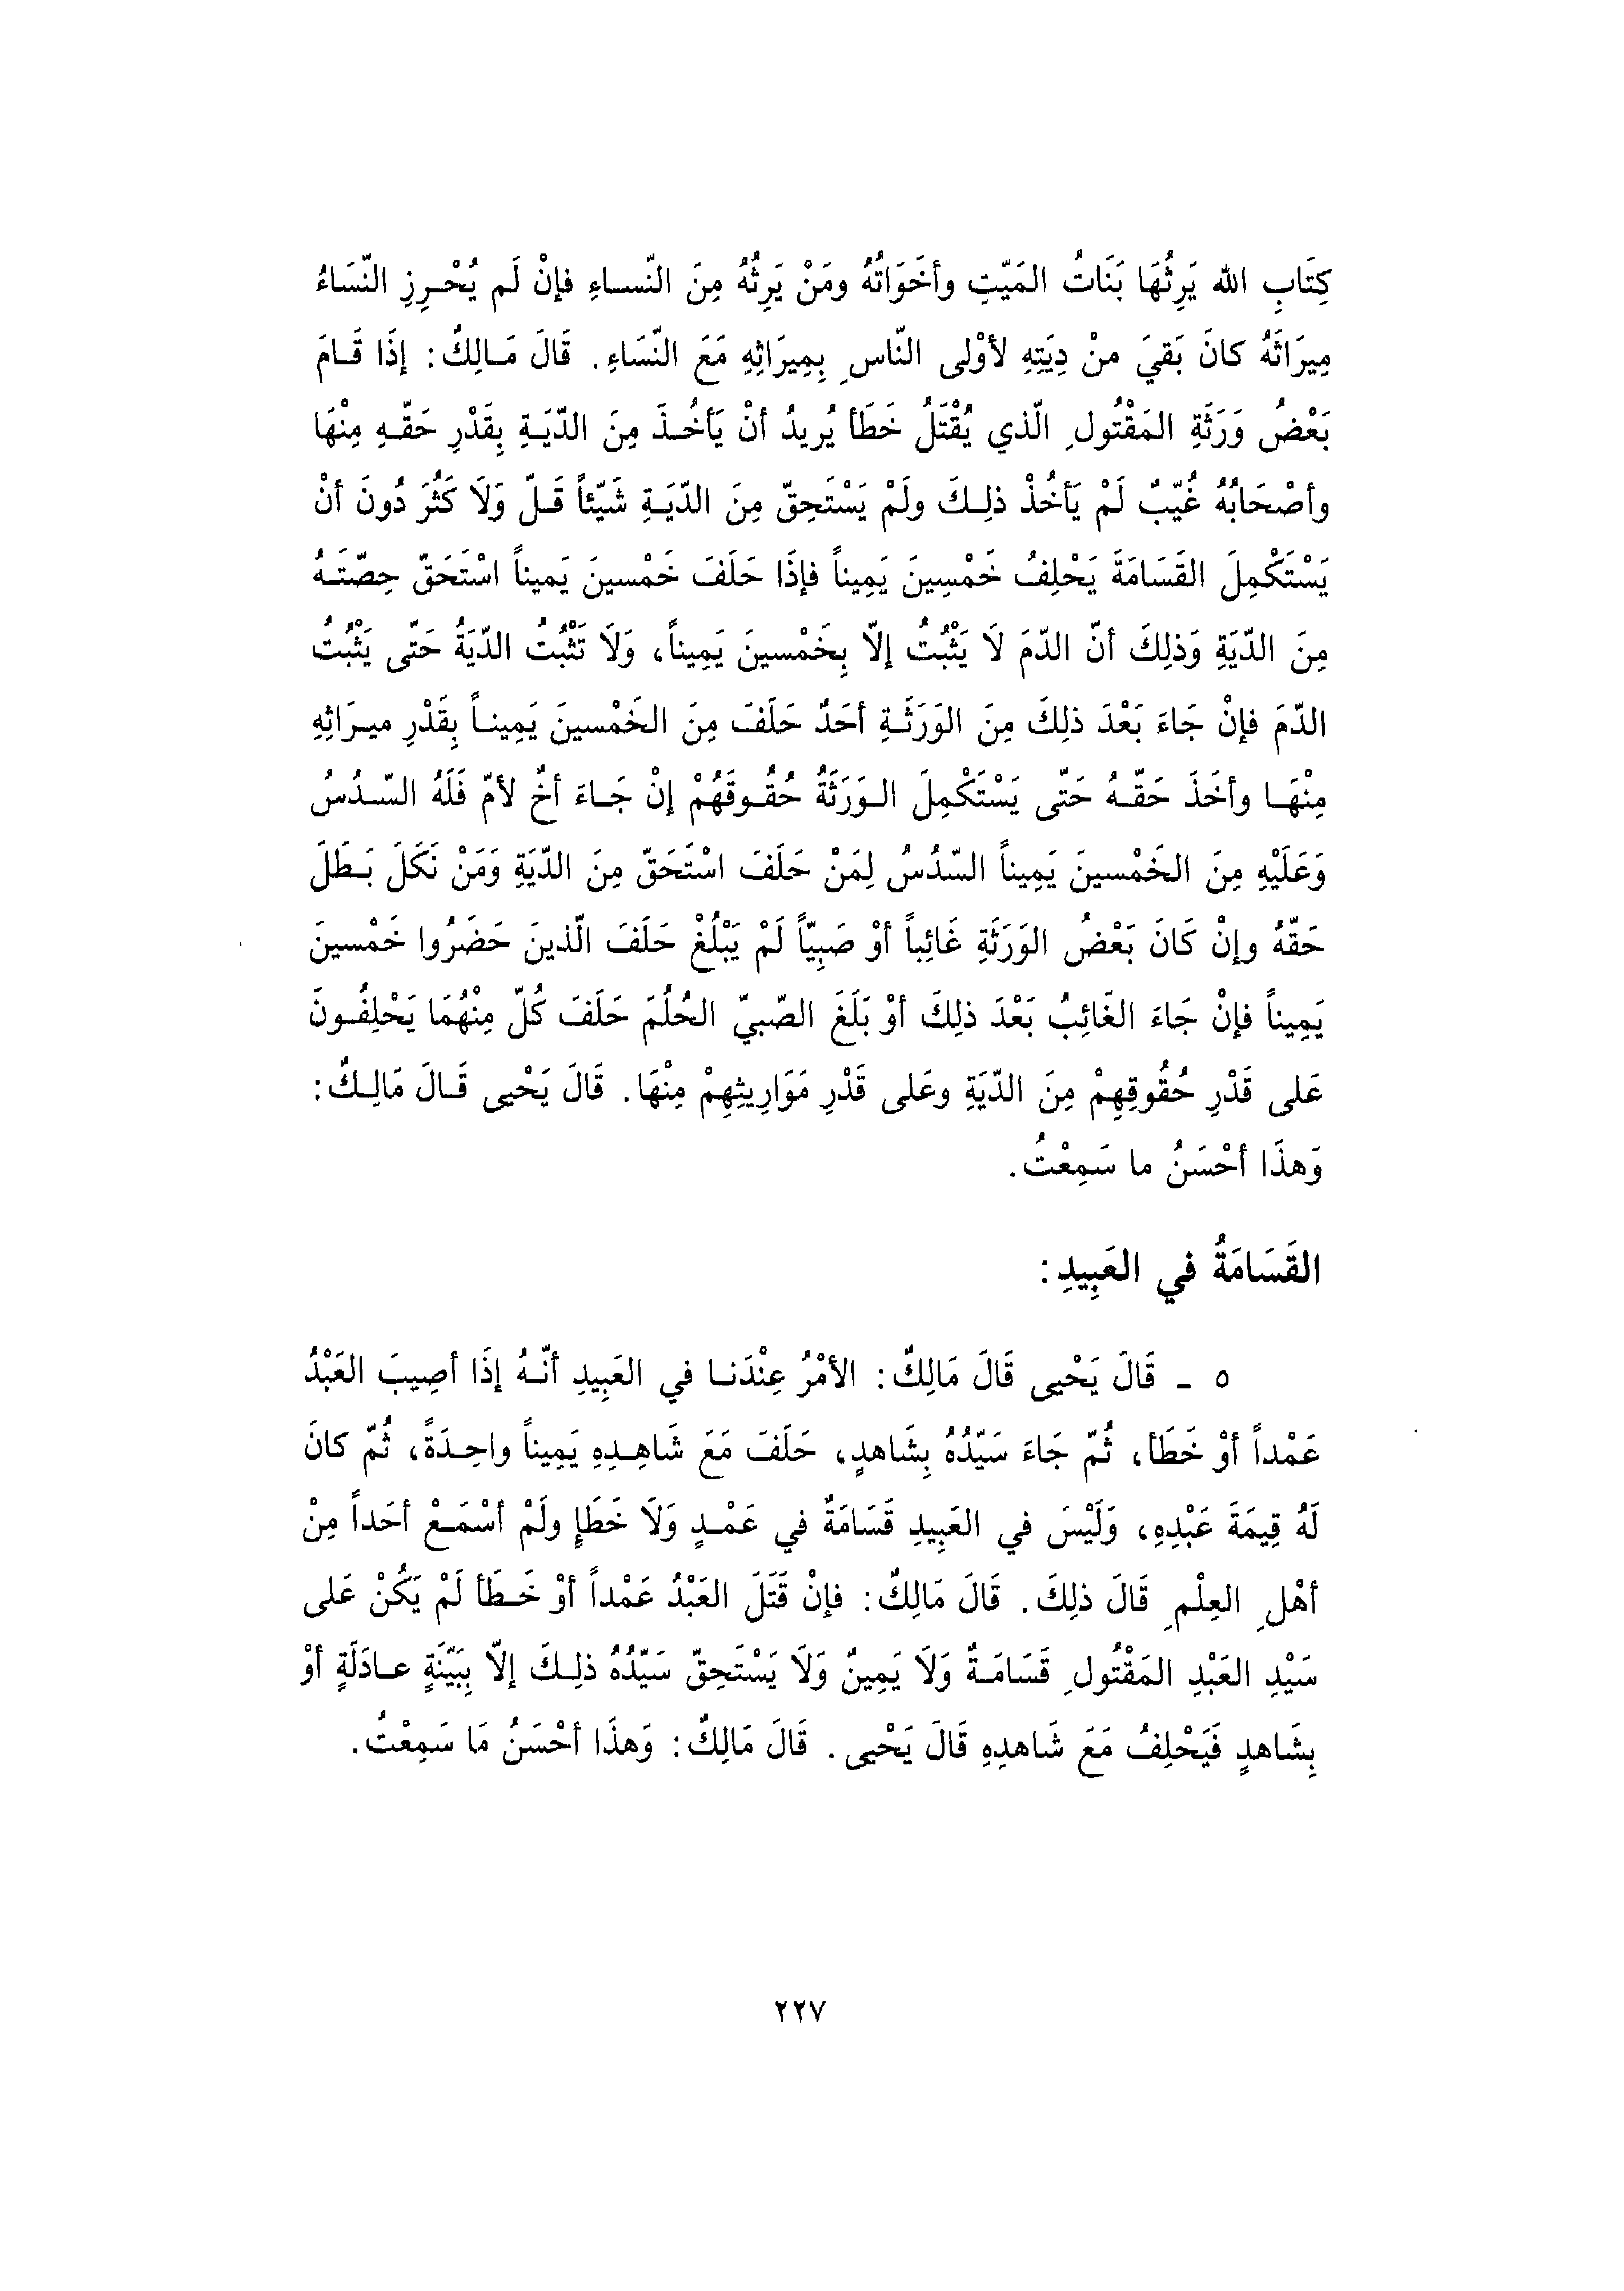 كِتَابِ الله يَرِثُهَا بَنَاتُ المَيّتِ وأخَوَاتُهُ ومَنْ يَرِثُهُ مِنَ النّساءِ فإنْ لَم يُحْرِزِ النّسَاءُ
مِيرَاثَهُ كانَ بَقيَ منْ دِيَتِهِ لأوْلى النّاسِ بِمِيرَاثِهِ مَعَ النّسَاءِ. قَالَ مَالِكٌ: إذَا قَامَ
بَعْضُ وَرَثَةِ المَقْتُولِ الّذي يُقْتَلُ خَطَأ يُريدُ أنْ يَأخُذَ مِنَ الدّيَةِ بِقَدْرِ حَقّهِ مِنْهَا
وأصْحَابُهُ غُيّبٌ لَمْ يَأخُذْ ذلِكَ ولَمْ يَسْتَحِقّ مِنَ الدّيَةِ شَيْئاً قَلّ وَلَا كَثُرَ دُونَ أنْ
يَسْتَكْمِلَ القَسَامَةَ يَحْلِفُ خَمْسِينَ يَمِيناً فإذَا حَلَفَ خَمْسينَ يَميناً اسْتَحَقّ حِصّتَهُ
مِنَ الدّيَةِ وَذلِكَ أنّ الدّمَ لَا يَثْبُتُ إلاّ بِخَمْسينَ يَمِيناً، وَلَا تَثْبُتُ الدّيَةُ حَتّى يَثْبُتُ
الدّمَ فإنْ جَاءَ بَعْدَ ذلِكَ مِنَ الوَرَثَةِ أحَدٌ حَلَفَ مِنَ الخَمْسينَ يَمِيناً بِقَدْرِ ميرَاثِهِ
مِنْهَا وأخَذَ حَقّهُ حَتّى يَسْتَكْمِلَ الوَرَثَةُ حُقُوقَهُمْ إنْ جَاءَ أخٌ لأمّ فَلَهُ السّدُسُ
وَعَلَيْهِ مِنَ الخَمْسينَ يَمِيناً السّدُسُ لِمَنْ حَلَفَ اسْتَحَقّ مِنَ الدّيَةِ وَمَنْ نَكَلَ بَطَلَ
حَقّهُ وإنْ كَانَ بَعْضُ الوَرَثَةِ غَائِباً أوْ صَبِيّاً لَمْ يَبْلُغْ حَلَفَ الّذينَ حَضَرُوا خَمْسينَ
يَمِيناً فإنْ جَاءَ الغَائِبُ بَعْدَ ذلِكَ أوْ بَلَغَ الصّبيّ الحُلُمَ حَلَفَ كُلّ مِنْهُمَا يَحْلِفُونَ
عَلى قَدْرِ حُقُوقِهِمْ مِنَ الدّيَةِ وعَلى قَدْرِ مَوَارِيثِهِمْ مِنْهَا. قَالَ يَحْيى قَالَ مَالِكٌ:
وَهذَا أحْسَنُ ما سَمِعْتُ.
القَسَامَةُ في العَبِيدِ:
٥ - قَالَ يَحْيى قَالَ مَالِكٌ: الأمْرُ عِنْدَنا في العَبِيدِ أنّهُ إذَا أصِيبَ العَبْدُ
عَمْداً أوْ خَطَأ، ثُمّ جَاءَ سَيّدُهُ بِشَاهدٍ، حَلَفَ مَعَ شَاهِدِهِ يَمِيناً واحِدَةً، ثُمّ كانَ
لَهُ قِيمَةَ عَبْدِهِ، وَلَيْسَ في العَبِيدِ قَسَامَةٌ في عَمْدٍ وَلَا خَطَإ ولَمْ أسْمَعْ أحَداً مِنْ
أهْلِ العِلْمِ قَالَ ذلِكَ. قَالَ مَالِكٌ: فإنْ قَتَلَ العَبْدُ عَمْداً أوْ خَطَأ لَمْ يَكُنْ عَلى
سَيْدِ العَبْدِ المَقْتُولِ قَسَامَةٌ وَلَا يَمِينٌ وَلَا يَسْتَحِقّ سَيّدُهُ ذلِكَ إلاّ بِبَيّنَةٍ عادَلَةٍ أوْ
بِشَاهدٍ فَيَحْلِفُ مَعَ شَاهدِهِ قَالَ يَحْيى. قَالَ مَالِكٌ: وَهذَا أحْسَنُ مَا سَمِعْتُ.
٢٢٧